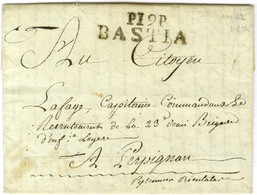 P.19.P.
BASTIA
Au Citoyen
Lafaye, Capitaine Commandant Le
Recrutement de la 23e demi Brigade
d'infie Legere
A Perpignan
Pyrennées Orientales